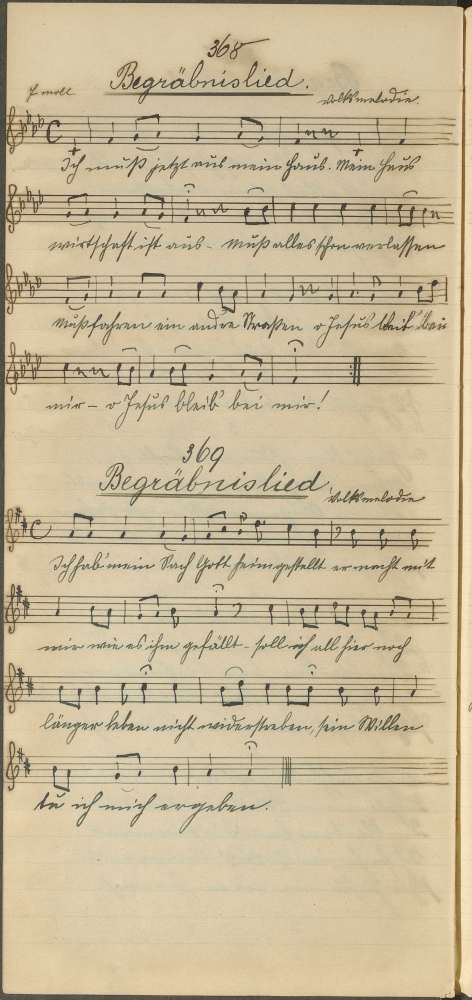 368
Begräbnislied.
F moll
Volksmelodie.
Ich muß jetzt aus mein Haus. Mein Haus
wirtschaft ist aus - Muß alles schon verlassen
Muß fahren ein andre Strassen o Jesus bleib' bei
mir - o Jesus bleib' bei mir!
369
Begräbnislied
Volksmelodie
Ich hab' mein Sach Gott heimgestellt er macht mit
mir wie es ihm gefällt - soll ich all hier noch
länger leben nicht widerstreben, sein Willen
tu ich mich ergeben.